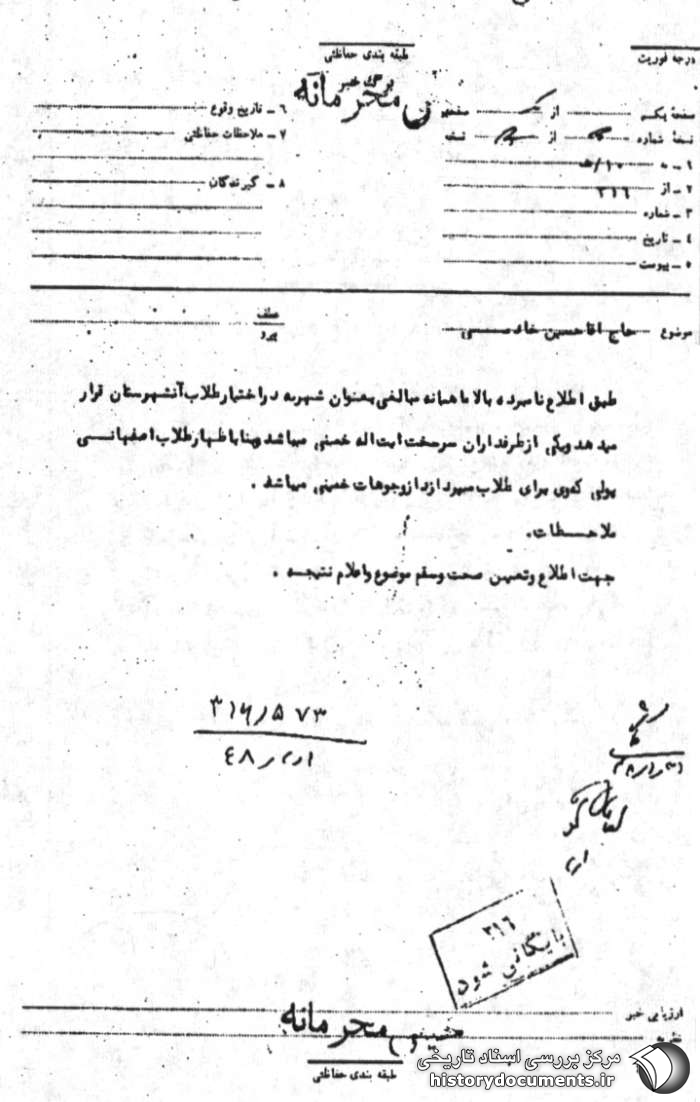 طبقه بندی حفاظتی
درجه فوریت
برگ خبر
محرمانه
صفحه یکم از صفحه
نسخه شماره از نسخه
۱ ـ به ۱۰/ﻫ
۲ ـ از ۳۱۶
۳ ـ شماره
۴ ـ تاریخ
۵ ـ پیوست
۶ ـ تاریخ وقوع
۷ ـ ملاحظات حفاظتی
۸ ـ گیرندگان
موضوع حاج اقاحسین خادمی
عطف
پیرو
طبق اطلاع نامبرده بالا ماهیانه مبالغی بعنوان شهریه دراختیارطلاب آنشهرستان قرار
میدهدویکی ازطرفداران سرسخت ایت اله خمینی میباشدوبنا باظهارطلاب اصفهانی
پولی که وی برای طلاب میپردازدازوجوهات خمینی میباشد .
ملاحظات.
جهت اطلاع وتعیین صحت وسقم موضوع واعلام نتیجه .
۳۱۶٫۵۷۳
۴۸
۳۱۶
بایگانی شود
ارزیابی خبر
نظریه
محرمانه
طبقه بندی حفاظتی
مرکز بررسی اسناد تاریخی
historydocuments.ir